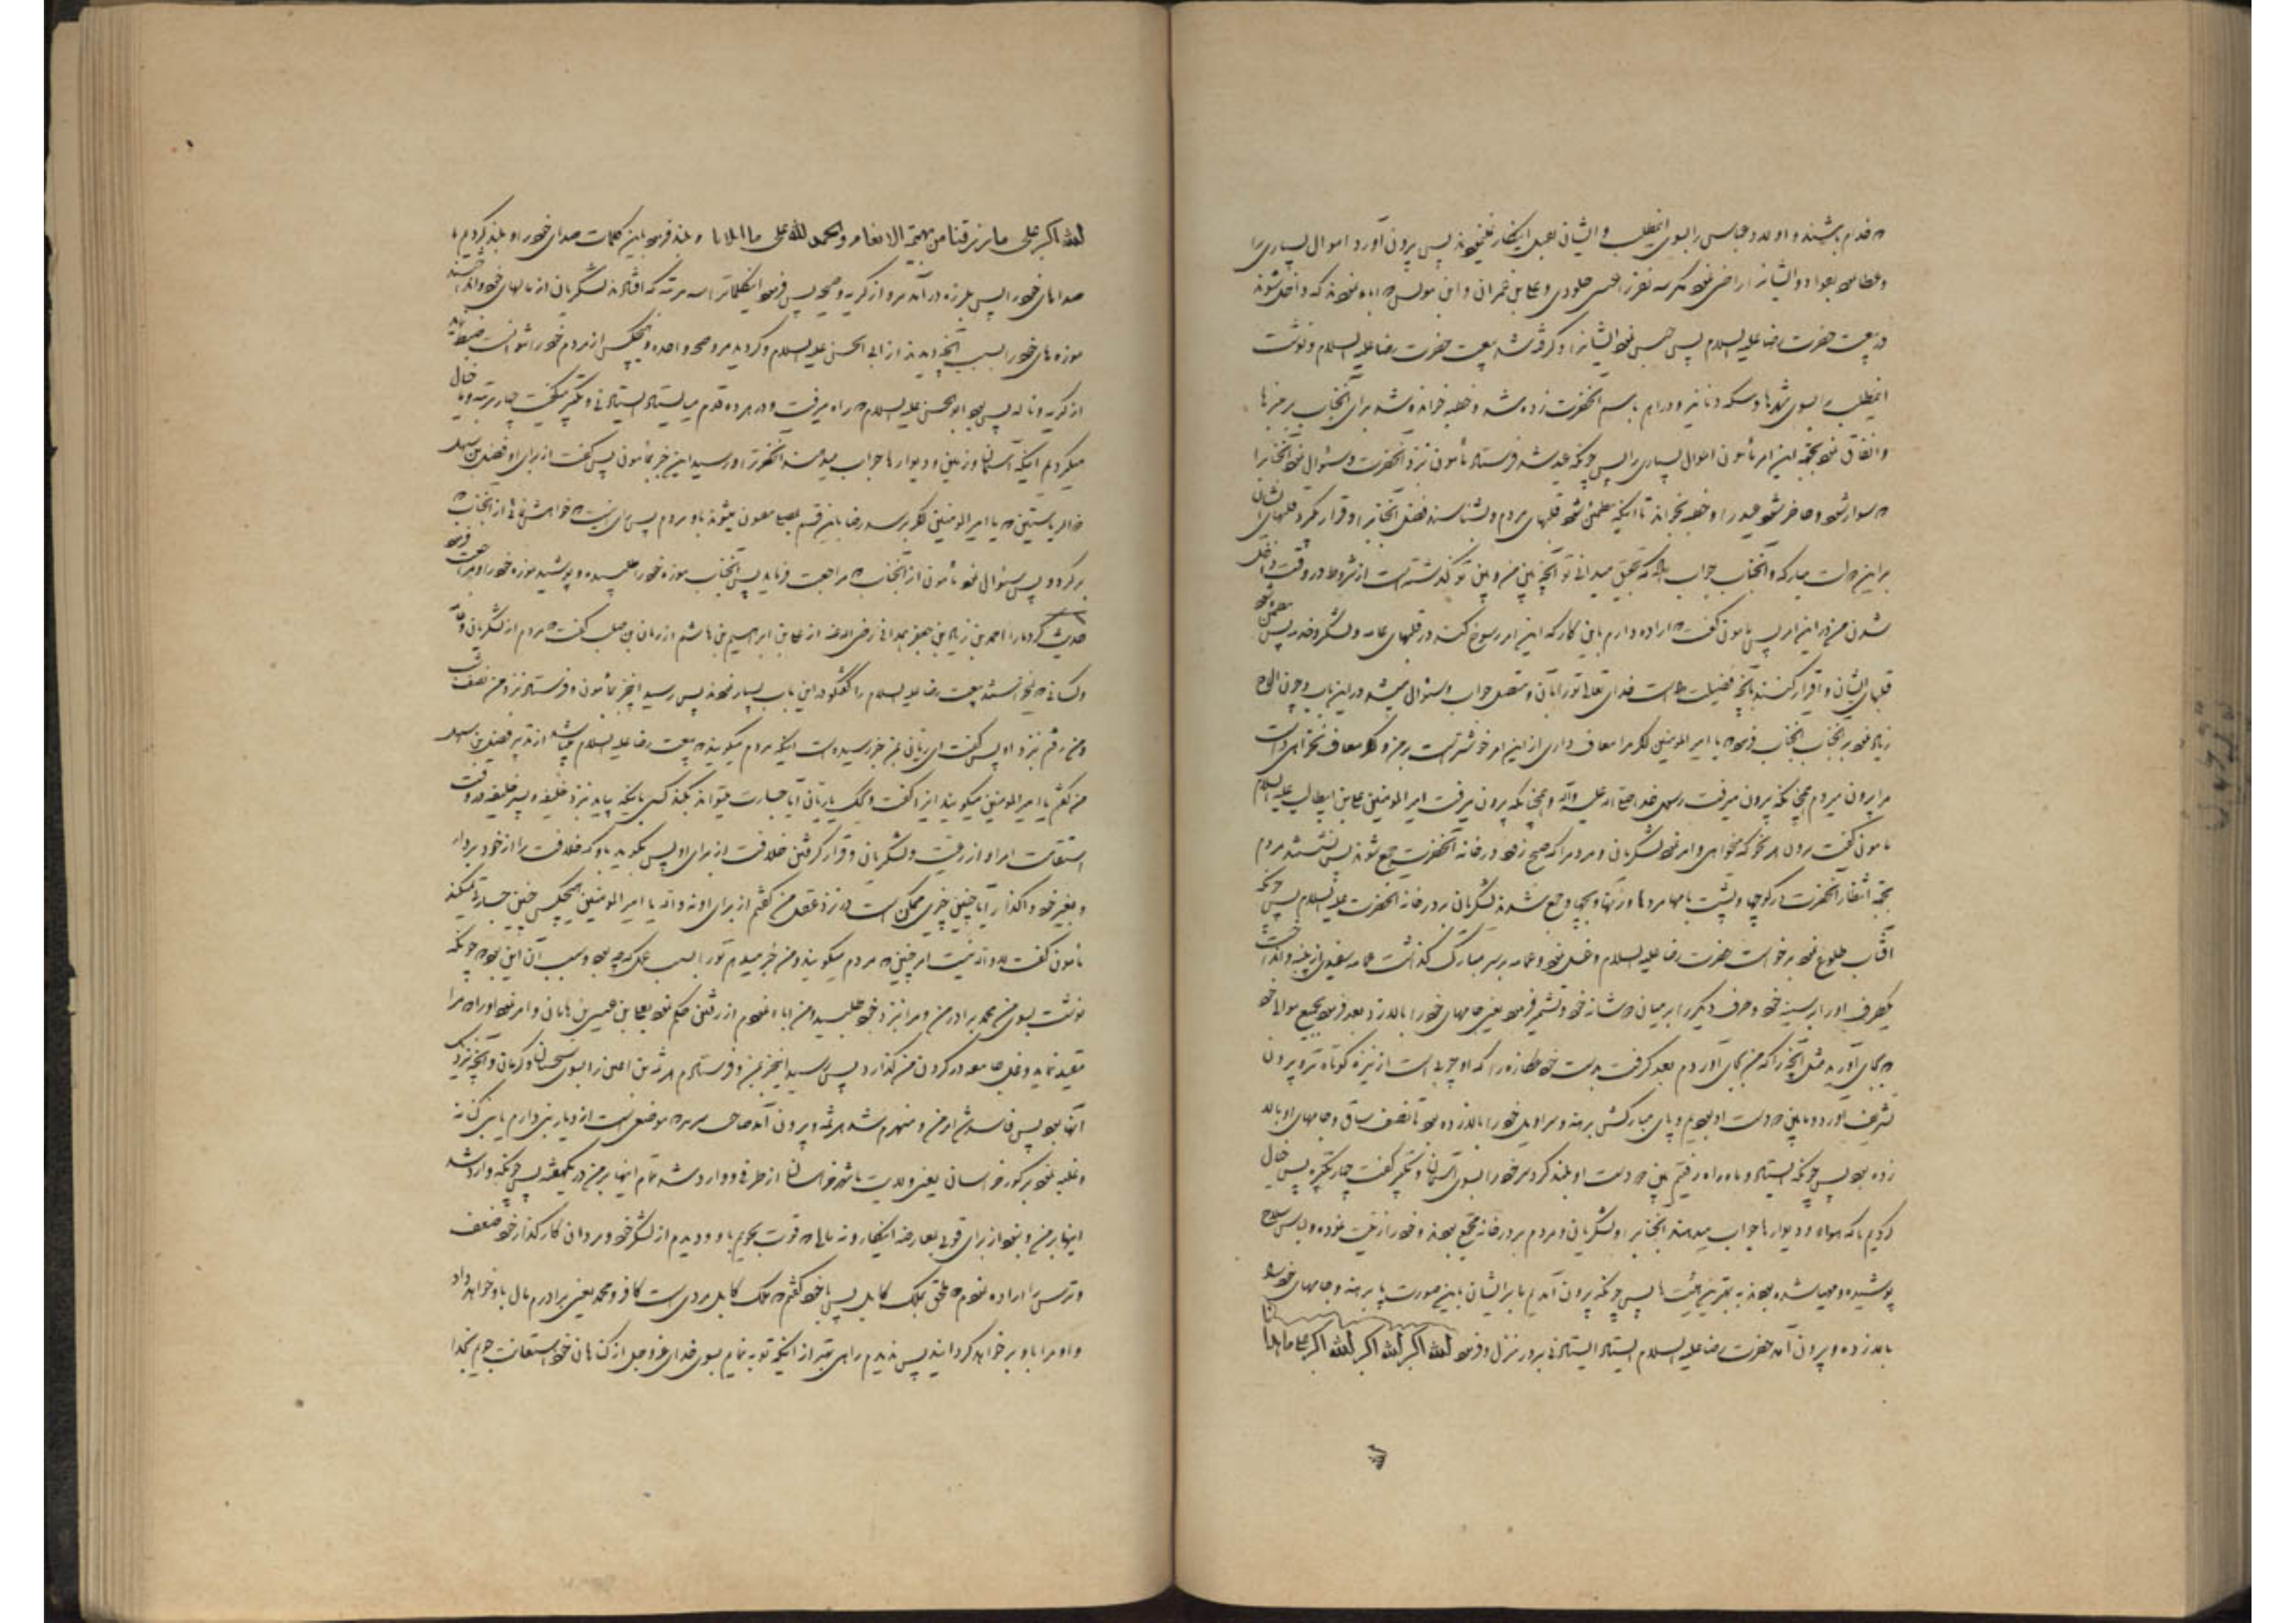 که قدام باشند و اولاد عباس را بسوی اینمطلب و ایشان بعمل اینکار نمینمودند پس بیرون آورد اموال بسیاری را
و عطا نمود بقواد و ایشانرا راضی نمود مگر سه نفر را عیسی جلودی و علی بن عمران و ابن مونس که اباء نمودند که داخل شوند
در بیعت حضرت رضا علیه السلام پس حبس نمود ایشانرا و گرفته شد بیعت حضرت رضا علیه السلام و نوشت
اینمطلب را بسوی شهرها و سکه دنانیر و دراهم باسم آنحضرت زده شد و خطبه خوانده شد برای آنجناب بر منبرها
و انفاق نمود بجهة این امر مأمون اموال بسیاری را پس چونکه عید شد فرستاد مأمون نزد آنحضرت و سئوال نمود آنجنابرا
که سوار شود و حاضر شود عید را و خطبه بخواند تا اینکه مطمئن شود قلبهای مردم و بشناسند فضل آنجنابرا و قرار گیرد قلبهای ایشان
براین دولت مبارکه و آنجناب جواب داد که بتحقیق میدانی تو آنچه بین من و بین تو گذشته است از شروط در وقت داخل
شدن من در این امر پس مأمون گفت که اراده دارم باین کار که این امر رسوخ کند در قلبهای عامه و لشکر و خدمه پس مطمئن شود
قلبهای ایشان و اقرار کنند بآنچه فضیلت داده است خدای تعالی تورا بآن و متصل جواب و سئوال میشد در این باب و چون الحاح
زیاد نمود بر آنجناب آنجناب فرمود یا امیر المومنین اگر مرا معاف داری از این امر خوشتر است بر من و اگر معاف نخواهی داشت
مرا بیرون میروم همچنانکه بیرون میرفت رسول خدا صلی الله علیه وآله و همچنانکه بیرون میرفت امیر المومنین علی بن ابیطالب علیه السلام
مأمون گفت برون هر نحو که میخواهی و امر نمود لشکریان و مردم را که صبح زود در خانه آنحضرت جمع شوند پس نشستند مردم
بجهة انتظار آنحضرت در کوچها و پشت بامها مردها و زنها و بچها و جمع شدند لشکریان بر در خانه آنحضرت علیه السلام پس چونکه
آفتاب طلوع نمود برخواست حضرت رضا علیه السلام و غسل نمود و عمامه بر سر مبارک گذاشت عمامه سفیدی از پنبه و انداخت
یکطرف اورا بر سینه خود و طرف دیگر را بر میان دو شانه خود و تشمیر فرمود یعنی جامهای خود را بالا زد بعد فرمود بجمیع موالی خود
که بجای آورید مثل آنچه را که من بجای آوردم بعد گرفت بدست خود عکازه را که او چوبی است از نیزه کوتاه تر و بیرون
تشریف آورد و ما بین دو دست او بودیم و پای مبارکش برهنه و سراویل خود را بالا زده بود تا نصف ساق و جامهای او بالا
زده بود پس چونکه ایستاد و ما راه رفتیم بین دو دست او بلند کرد سر خود را بسوی آسمان و تکبیر گفت چهار تکبیره پس خیال
کردیم ما که هواء و دیوارها جواب میدهند آنجناب را و لشکریان و مردم بر در خانه جمع بودند و خود را زینت نموده و لباس سلاح
پوشیده و مهیا شده بودند به بهترین هیئت ها پس چونکه بیرون آمدیم ما بر ایشان باین صورت پا برهنه و جامهای خود را
بالا زده و بیرون آمد حضرت رضا علیه السلام ایستاد ایستادنی بر در منزل و فرمود الله اکبر الله اکبر الله اکبر علی ما هدانا
الله اکبر علی ما رزقنا من بهیمة الانعام والحمد لله علی ما ابلانا و بلند فرمود باین کلمات صدای خود را و بلند کردیم ما
صداهای خود را پس بلرزه در آمد مرو از گریه و صیحه پس فرمود اینکلماترا سه مرتبه که افتادند لشکریان از مالهای خود و انداختند
موزه های خود را بسبب آنچه دیدند از ابی الحسن علیه السلام و گردید مرو صیحه واحده و هیچکس از مردم خود را نتوانست ضبط نماید
از گریه و ناله پس بود ابو الحسن علیه السلام که راه میرفت و در هر ده قدم میایستاد ایستادنی و تکبیر میگفت چهار مرتبه و ما خیال
میکردیم اینکه آسمان و زمین و دیوارها جواب میدهند آنحضرترا و رسید این خبر بمأمون پس گفت از برای او فضل بن سهل
ذالریاستین که یا امیر المومنین اگر برسد رضا باین قسم بمصلی مفتون میشوند باو مردم پس رای اینست که خواهش نمائی از آنجناب که
برگردد پس سئوال نمود مأمون از آنجناب که مراجعت فرماید پس آنجناب موزه خود را طلبیده و پوشید موزه خود را و مراجعت فرمود
حدیث کرد مارا احمد بن زیاد بن جعفر همدانی رضی الله عنه از علی بن ابراهیم بن هاشم از ریان بن صلت گفت که مردم از لشکریان و عامه
و کسانیکه نمیخواستند بیعت رضا علیه السلام را گفتگو در این باب بسیار نمودند پس رسید اینخبر بمأمون و فرستاد نزد من نصف شب
و من رفتم نزد او پس گفت ای ریان بمن خبر رسیده است اینکه مردم میگویند که بیعت رضا علیه السلام میباشد از تدبیر فضل بن سهل
من گفتم یا امیر المومنین میگویند اینرا گفت ویحک یا ریان آیا جسارت میتواند بکند کسی باینکه بیاید نزد خلیفه و پسر خلیفه در وقت
استقامت امر او از رعیت و لشکریان و قرار گرفتن خلافت از برای او پس بگوید باو که خلافت را از خود بردار
و بغیر خود واگذار آیا چنین چیزی ممکن است در نزد عقل من گفتم از برای او نه والله یا امیر المومنین هیچکس چنین جسارتی نمیکند
مأمون گفت لا والله نیست امر چنین که مردم میگویند و من خبر میدهم تورا بسبب عمل که چه بود و سبب آن این بود که چونکه
نوشت بسوی من محمد برادر من و مرا نزد خود طلبید و من اباء نمودم از رفتن حکم نمود بعلی بن عیسی بن هامان و امر نمود اورا که مرا
مقید نماید و غل جامعه در گردن من گذارد پس رسید اینخبر بمن و فرستادم هرثمة بن اعین را بسوی سجستان و کرمان و آنچه نزدیک
آنها بود پس فاسد شد امر من و منهزم شد هرثمه و بیرون آمد صاحب سریر که موضعی است از دیار بنی دارم یا بنی کنانه
و غلبه نمود بر کور خراسان یعنی ولایت یا شهر خراسان از طرفی و وارد شد تمام اینها بر من در یکهفته پس چونکه وارد شد
اینها بر من و نبود از برای قوتی بمعارضه اینکار و نه مالی که قوت بجویم باو و دیدم از لشکر خود و مردان کارگذار خود ضعف
و ترس را اراده نمودم که ملحق بملک کابل پس با خود گفتم که ملک کابل مردی است کافر و محمد یعنی برادرم مال باو خواهد داد
و او مرا باو بر خواهد گردانید پس ندیدم راهی بهتر از اینکه توبه نمایم بسوی خدای عزوجل از گناهان خود و استعانت جویم بخدا